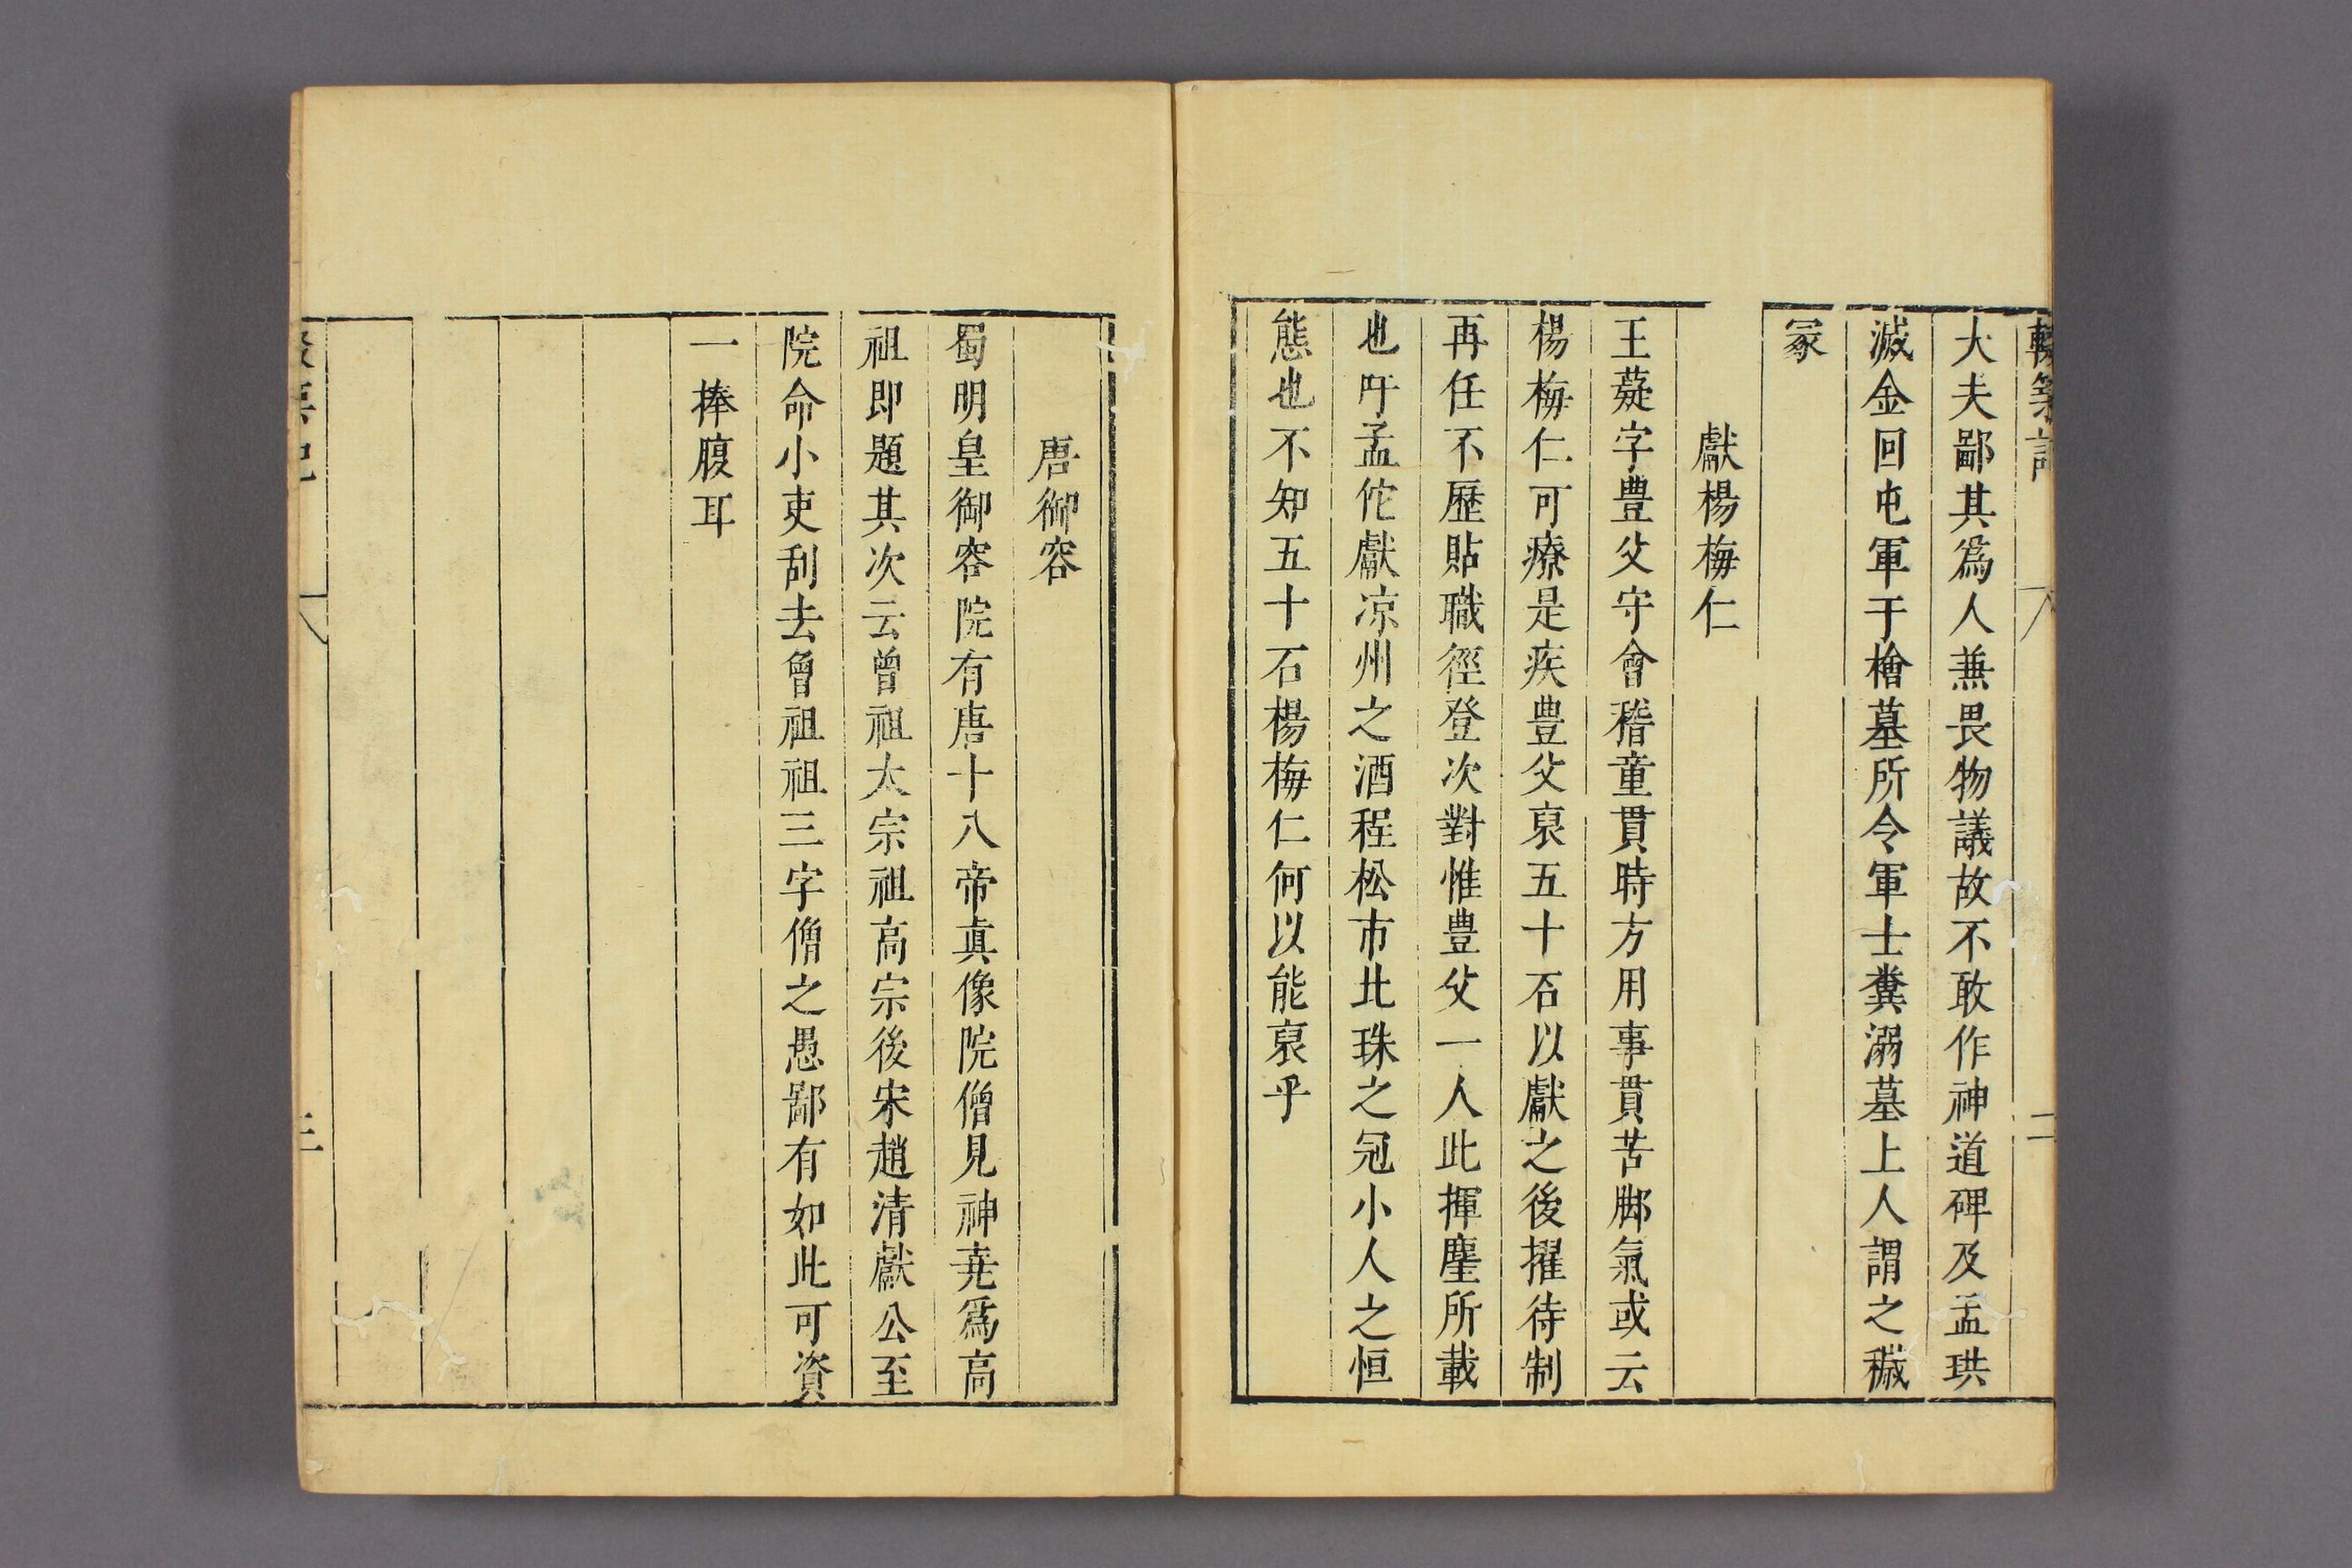 大夫鄙其爲人兼畏物議故不敢作神道碑及孟珙
滅金回屯軍于檜墓所令軍士糞溺墓上人謂之穢
冢
獻楊梅仁
王薿字豊父守會稽童貫時方用事貫苦脚氣或云
楊梅仁可療是疾豊父裒五十石以獻之後擢待制
再任不歷貼職徑登次對惟豊父一人此揮麈所載
也吁孟佗獻凉州之酒程松市北珠之冠小人之恒
態也不知五十石楊梅仁何以能裒乎
唐御容
蜀明皇御容院有唐十八帝真像院僧見神堯爲高
祖即題其次云曾祖太宗祖高宗後宋趙清獻公至
院命小吏刮去曾祖祖三字僧之愚鄙有如此可資
一捧腹耳
三